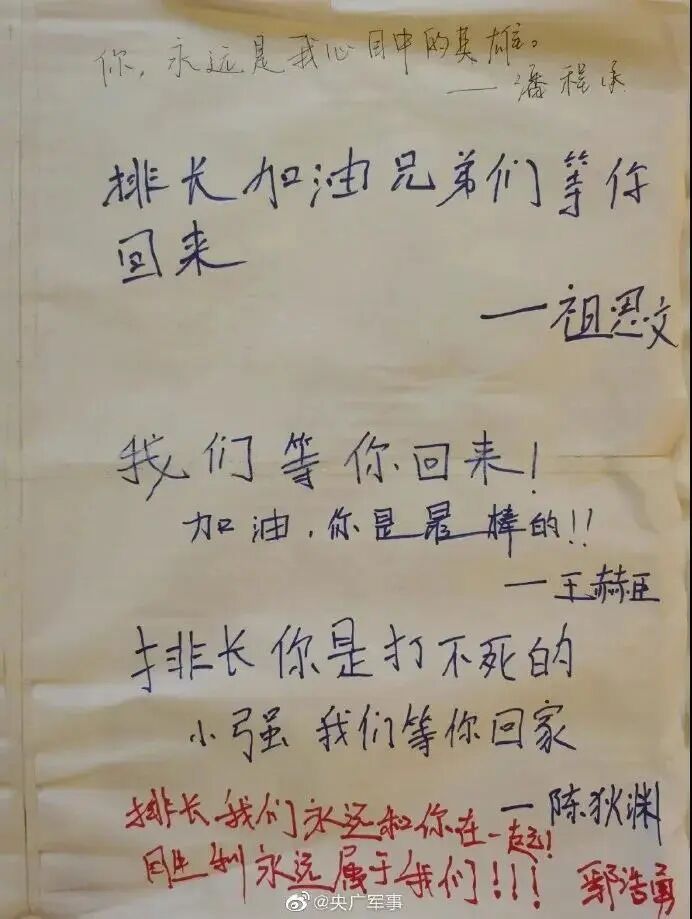 你，永远是我心目中的英雄。
——潘程承
排长加油兄弟们等你
回来
一祖恩文
我们等你回来！
加油，你是最棒的！！
一王赫臣
排长你是打不死的
小强 我们等你回家
一陈狄渊
排长我们永远和你在一起！
胜利永远属于我们！！！ 鄢浩勇
@央广军事